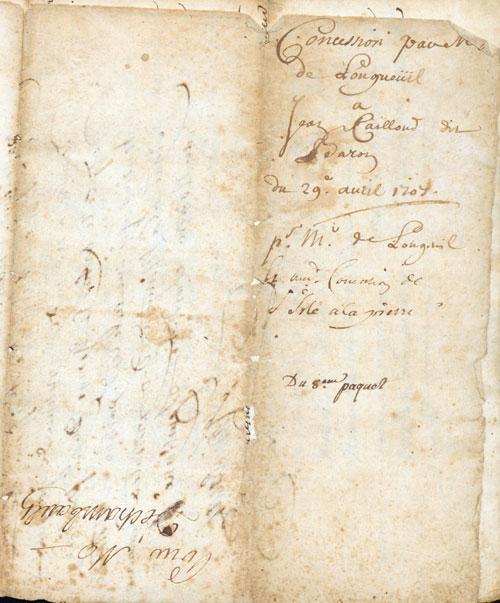 Concession par M
de Longueüil
a
Jean Cailloud dit
Baron
du 29e. avril 1707.
pr. Mr. de Longueil
Concession de
l'Isle a la pierre
Du 8.eme paquet
Deschambault